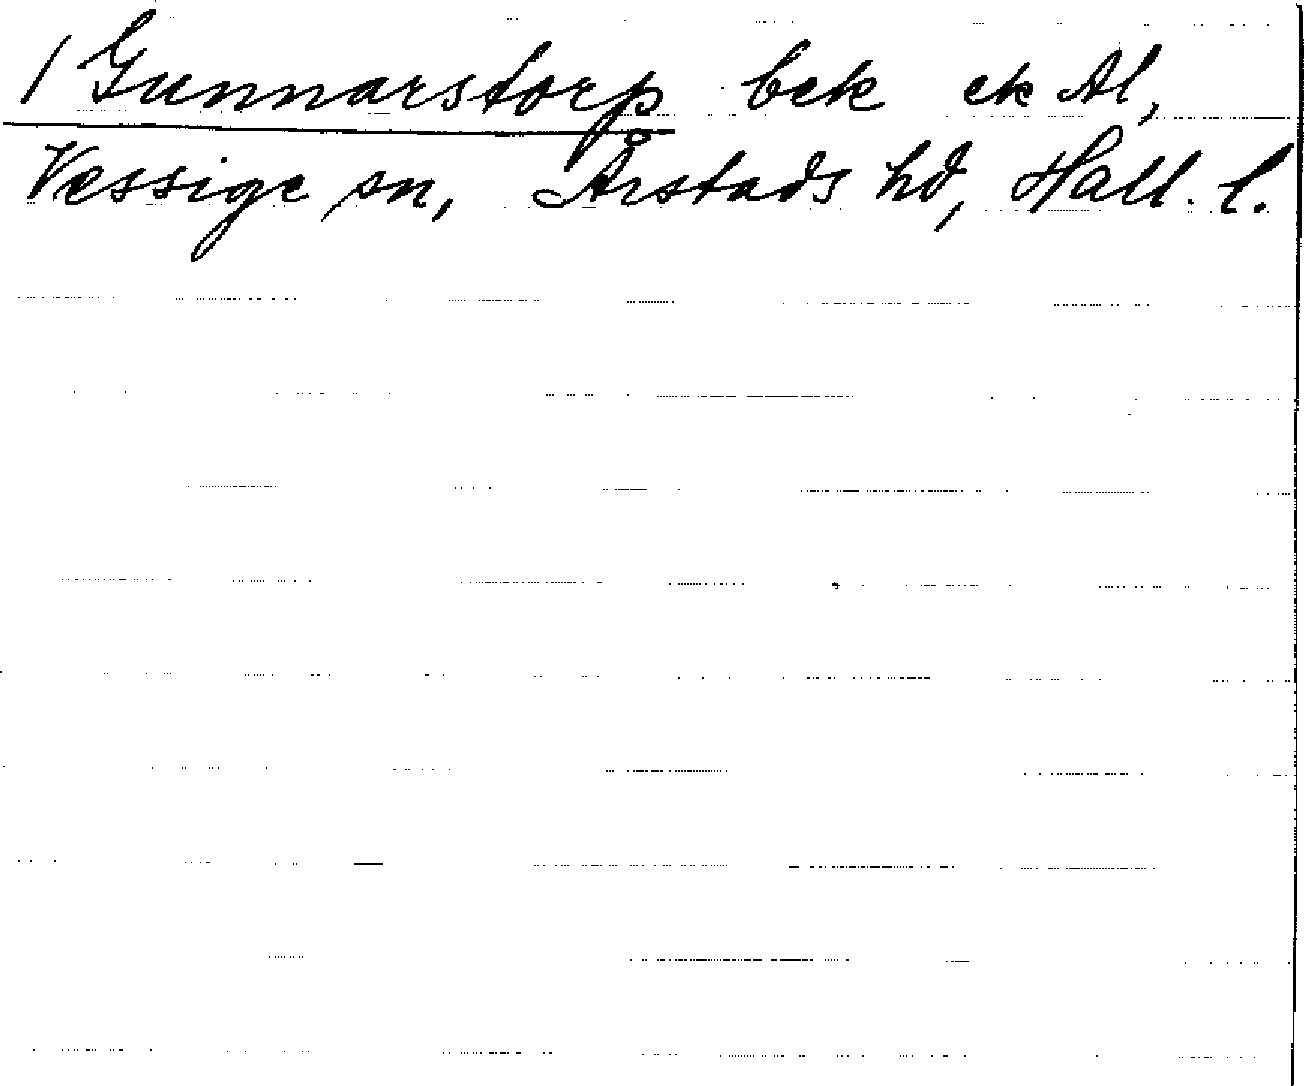 / Gunnarstorp bek ek Al,
Vessige sn, Årstads hd, Hall. l.